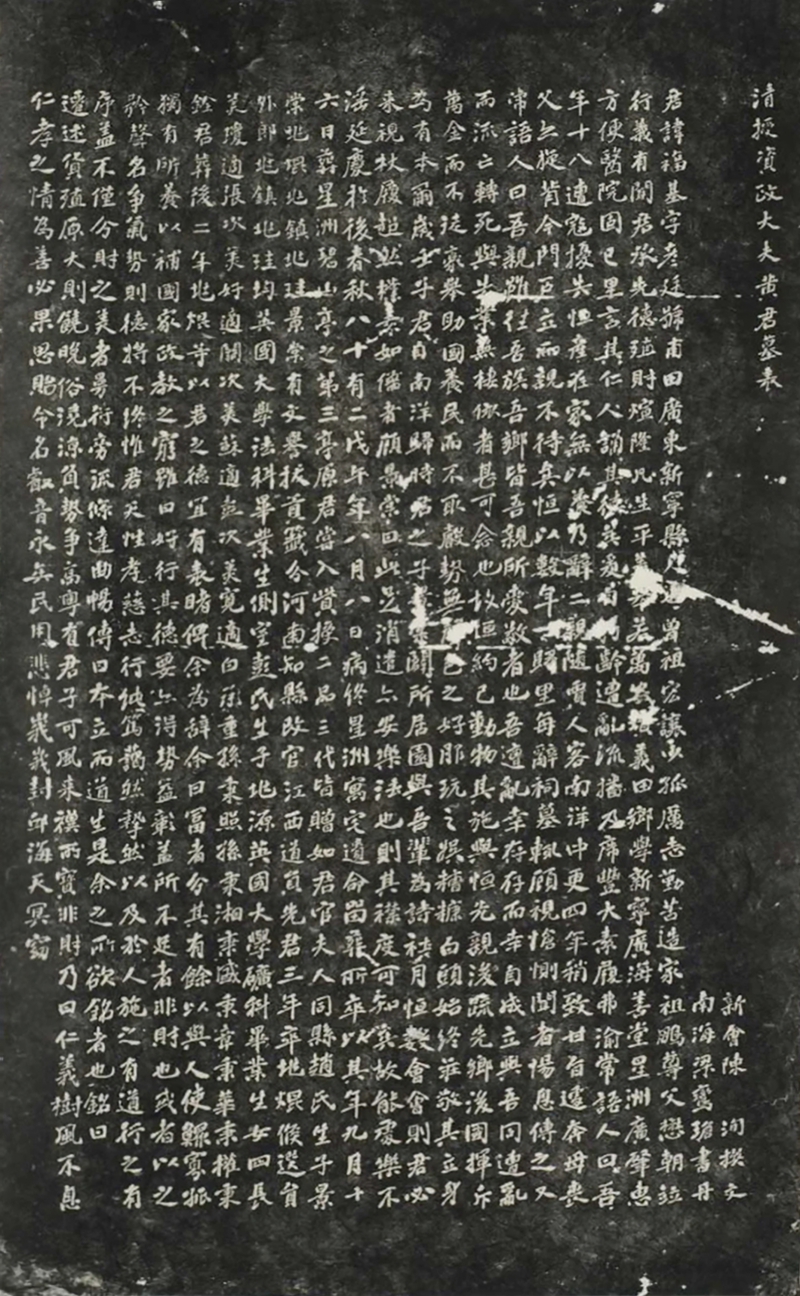 清授資政大夫黃君墓表
新會陳洵撰文
南海梁鸞瑲書丹
君諱福基字彥廷號甫田廣東新寧縣人曾祖宏讓少孤厲志勤苦造家祖鵬尊父懋朝竝
行義有聞君承先德殖財煊隆凡生平若萬置義田鄉學新寧廣海善堂星洲廣肇惠
方便醫院固已里言其仁人誦其德矣夏有齡遭亂流播及席豐大素履弗渝常語人曰吾
年十八遭寇擾失恒產在家無以養乃辭二親隨賈人客南洋中更四年稍致甘旨遽奔母喪
父亦旋背今門巨立而親不待矣恒以數年一歸里每辭祠墓輒顧視愴惻聞者惕息傳之又
常語人曰吾親雖往吾族吾鄉皆吾親所愛敬者也吾遭亂幸存存而幸自成立與吾同遭亂
而流亡轉死與失業無棲僦者甚可念也故恒約己勤物其施與恒先親後疏先鄉後國揮斥
萬金而不徒豪舉助國養民而不取嚴勢無己之好服玩之娛糟糠白頭始終莊敬其立身
為有本爾歲壬子君自南洋歸時君之子闢所居園與吾輩為詩社月恒數會會則君必
來視杖履超然樸素如儒者顧景棠曰此足消遣亦安樂法也則其襟度可知矣故能憂樂不
滛延慶於後春秋八十有二戊午年八月八日病終星洲寓宅遺命尚窀所卒以其年九月十
六日葬星洲碧山亭之第三亭原君嘗入貲授二品三代皆贈如君官夫人同縣趙氏生子景
棠兆焜兆鎮兆珪景棠有文譽拔貢籤分河南知縣改官江西道員先君三年卒兆焜候選員
外郎兆鎮兆珪均英國大學法科畢業生側室彭氏生子兆源英國大學礦科畢業生女四長
美瓊適張次美好適關次美蘇適甄次美寬適白孫重孫秉照孫秉湘秉盛秉章秉華秉權秉
銓君葬後二年兆焜等以君之德宜有表暏俾余為辭余曰富者分其有餘以與人使鰥寡孤
獨有所養以補國家政教之窮雖曰好行其德要亦得勢益彰蓋所不足者非財也或者以之
矜聲名爭氣勢則德將不終惟君天性孝慈志行純篤藹然摯然以及於人施之有道行之有
序蓋不僅分財之美者易衍旁流條達曲暢傳曰本立而道生是余之所欲銘者也銘曰
遷述貨殖原大則饒晚俗澆漓負勢爭高粵有君子可風來禩所寶非財乃曰仁義樹風不息
仁孝之情為善必果思貽令名嗣音永矢民用悲悼峩峩封邱海天冥窈